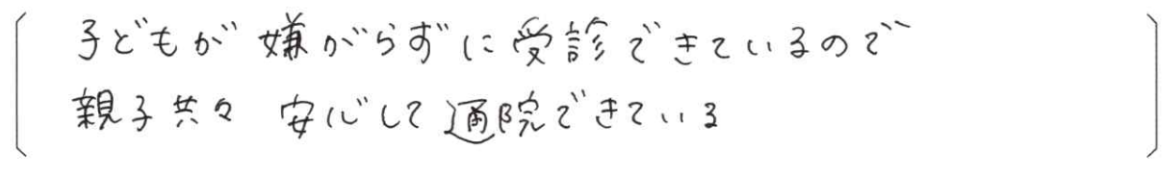 子どもが嫌がらずに受診できているので
親子共々 安心して通院できている